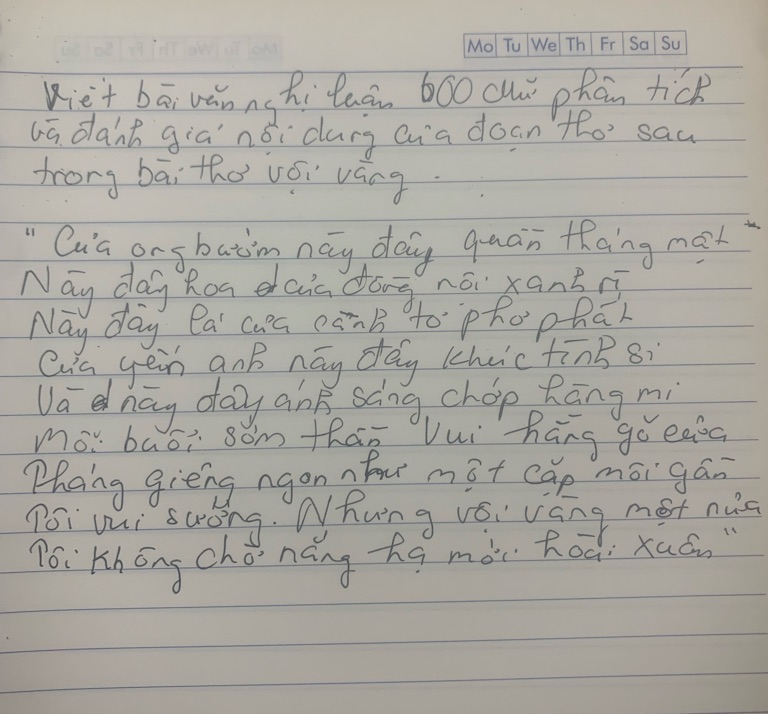 Mo Tu We Th Fr Sa Su
Viết bài văn nghị luận 600 chữ phân tích
và đánh giá nội dung của đoạn thơ sau
trong bài thơ vội vàng.
"Của ong bướm này đây tuần tháng mật
Này đây hoa của đồng nội xanh rì
Này đây lá của cành tơ phơ phất
Của yến anh này đây khúc tình si
Và này đây ánh sáng chớp hàng mi
Mỗi buổi sớm thần Vui hằng gõ cửa
Tháng giêng ngon như một cặp môi gần
Tôi vui sướng. Nhưng vội vàng một nửa
Tôi không chờ nắng hạ mới hoài xuân"